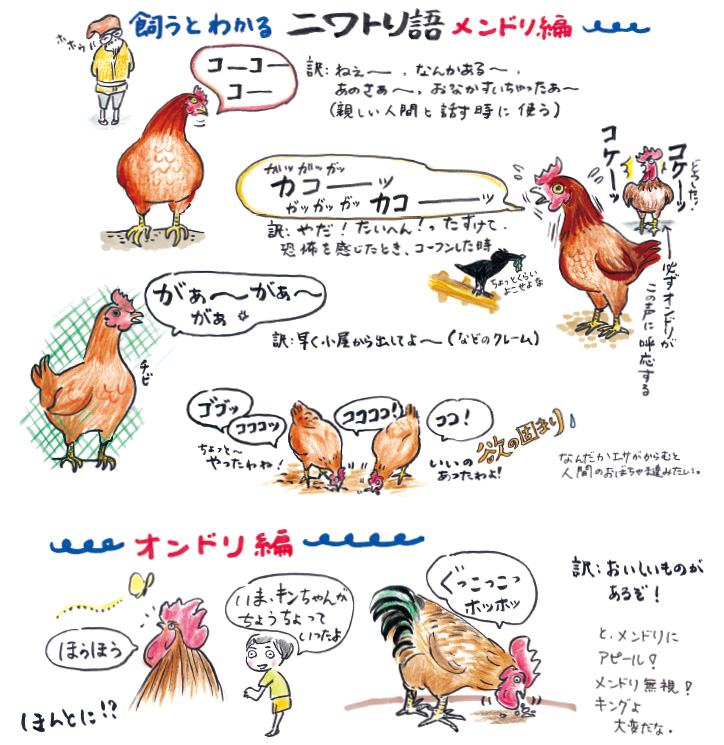 飼うとわかる ニワトリ語 メンドリ編
ホホゥ!!
コーコー
コー
訳:ねぇ〜、なんかある〜、
あのさぁ〜、おなかすいちゃったぁ〜
(親しい人間と話す時に使う)
ガッガッガッ
カコーーッ
ガッガッガッ カコーーッ
訳:やだ!たいへん!ったすけて。
恐怖を感じたとき、コーフンした時
コケーッ
コケーッ
どうした!
←必ずオンドリが
この声に呼応する
ちょっとくらい
よこせよな
がぁ〜がぁ〜
がぁ
チビ
訳:早く小屋から出してよ〜(などのクレーム)
ゴゴッ
コココッ
ココココ!
ココ!
ちょっと〜
やったわね!
いいの
あったわよ!
欲の固まり
なんだかエサがからむと
人間のおばちゃま達みたい。
オンドリ編
ほうほう
ほんとに!?
いま、キンちゃんが
ちょうちょって
いったよ
ぐっこっこっ
ホッホッ
訳:おいしいものが
あるぞ!
と、メンドリに
アピール!
メンドリ無視!
キングよ
大変だな。